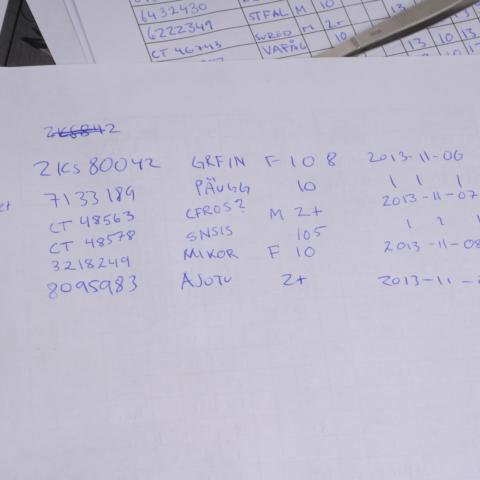 6432430 STFAL M 10 13
6222349 SVROD M 2+
CT 46743 VAFÅG 10 13 10 13
2KS 80042 GRFIN F 10 8 2013-11-06
7133189 PÄUGG 10 1 1 1
CT 48563 CFROS? M 2+ 2013-11-07
CT 48578 SNSIS 105 1 1 1
3218249 MIKOR F 10 2013-11-08
8095983 AJOTU 2+ 2013-11-